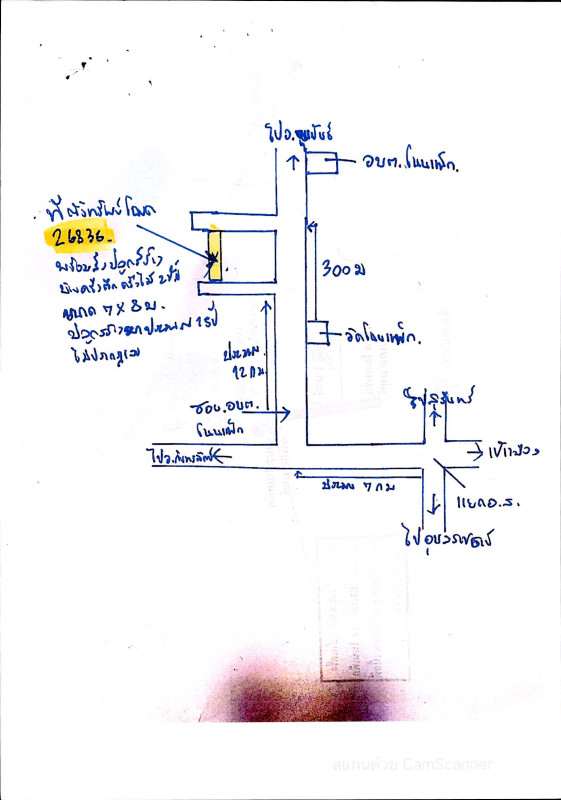 ไปอ.ขุขันธ์
อบต. โนนเพ็ก.
ที่ตั้งทรัพย์ โฉนด
26836.
พร้อมสิ่งปลูกสร้าง
บ้านครึ่งตึกครึ่งไม้ 2 ชั้น
ขนาด 7 x 8 ม.
ปลูกสร้างมาประมาณ 15 ปี
ไม่ปรากฏเลข
300 ม
วัดโนนเพ็ก.
ประมาณ
12 กม
ซอย.อบต.
โนนเพ็ก
ไปสุรินทร์
เข้าเมือง
ไปอ.กันทรลักษ์
ประมาณ 7 กม
แยก อ.ส.
ไปอุบลราชธานี
สแกนด้วย CamScanner